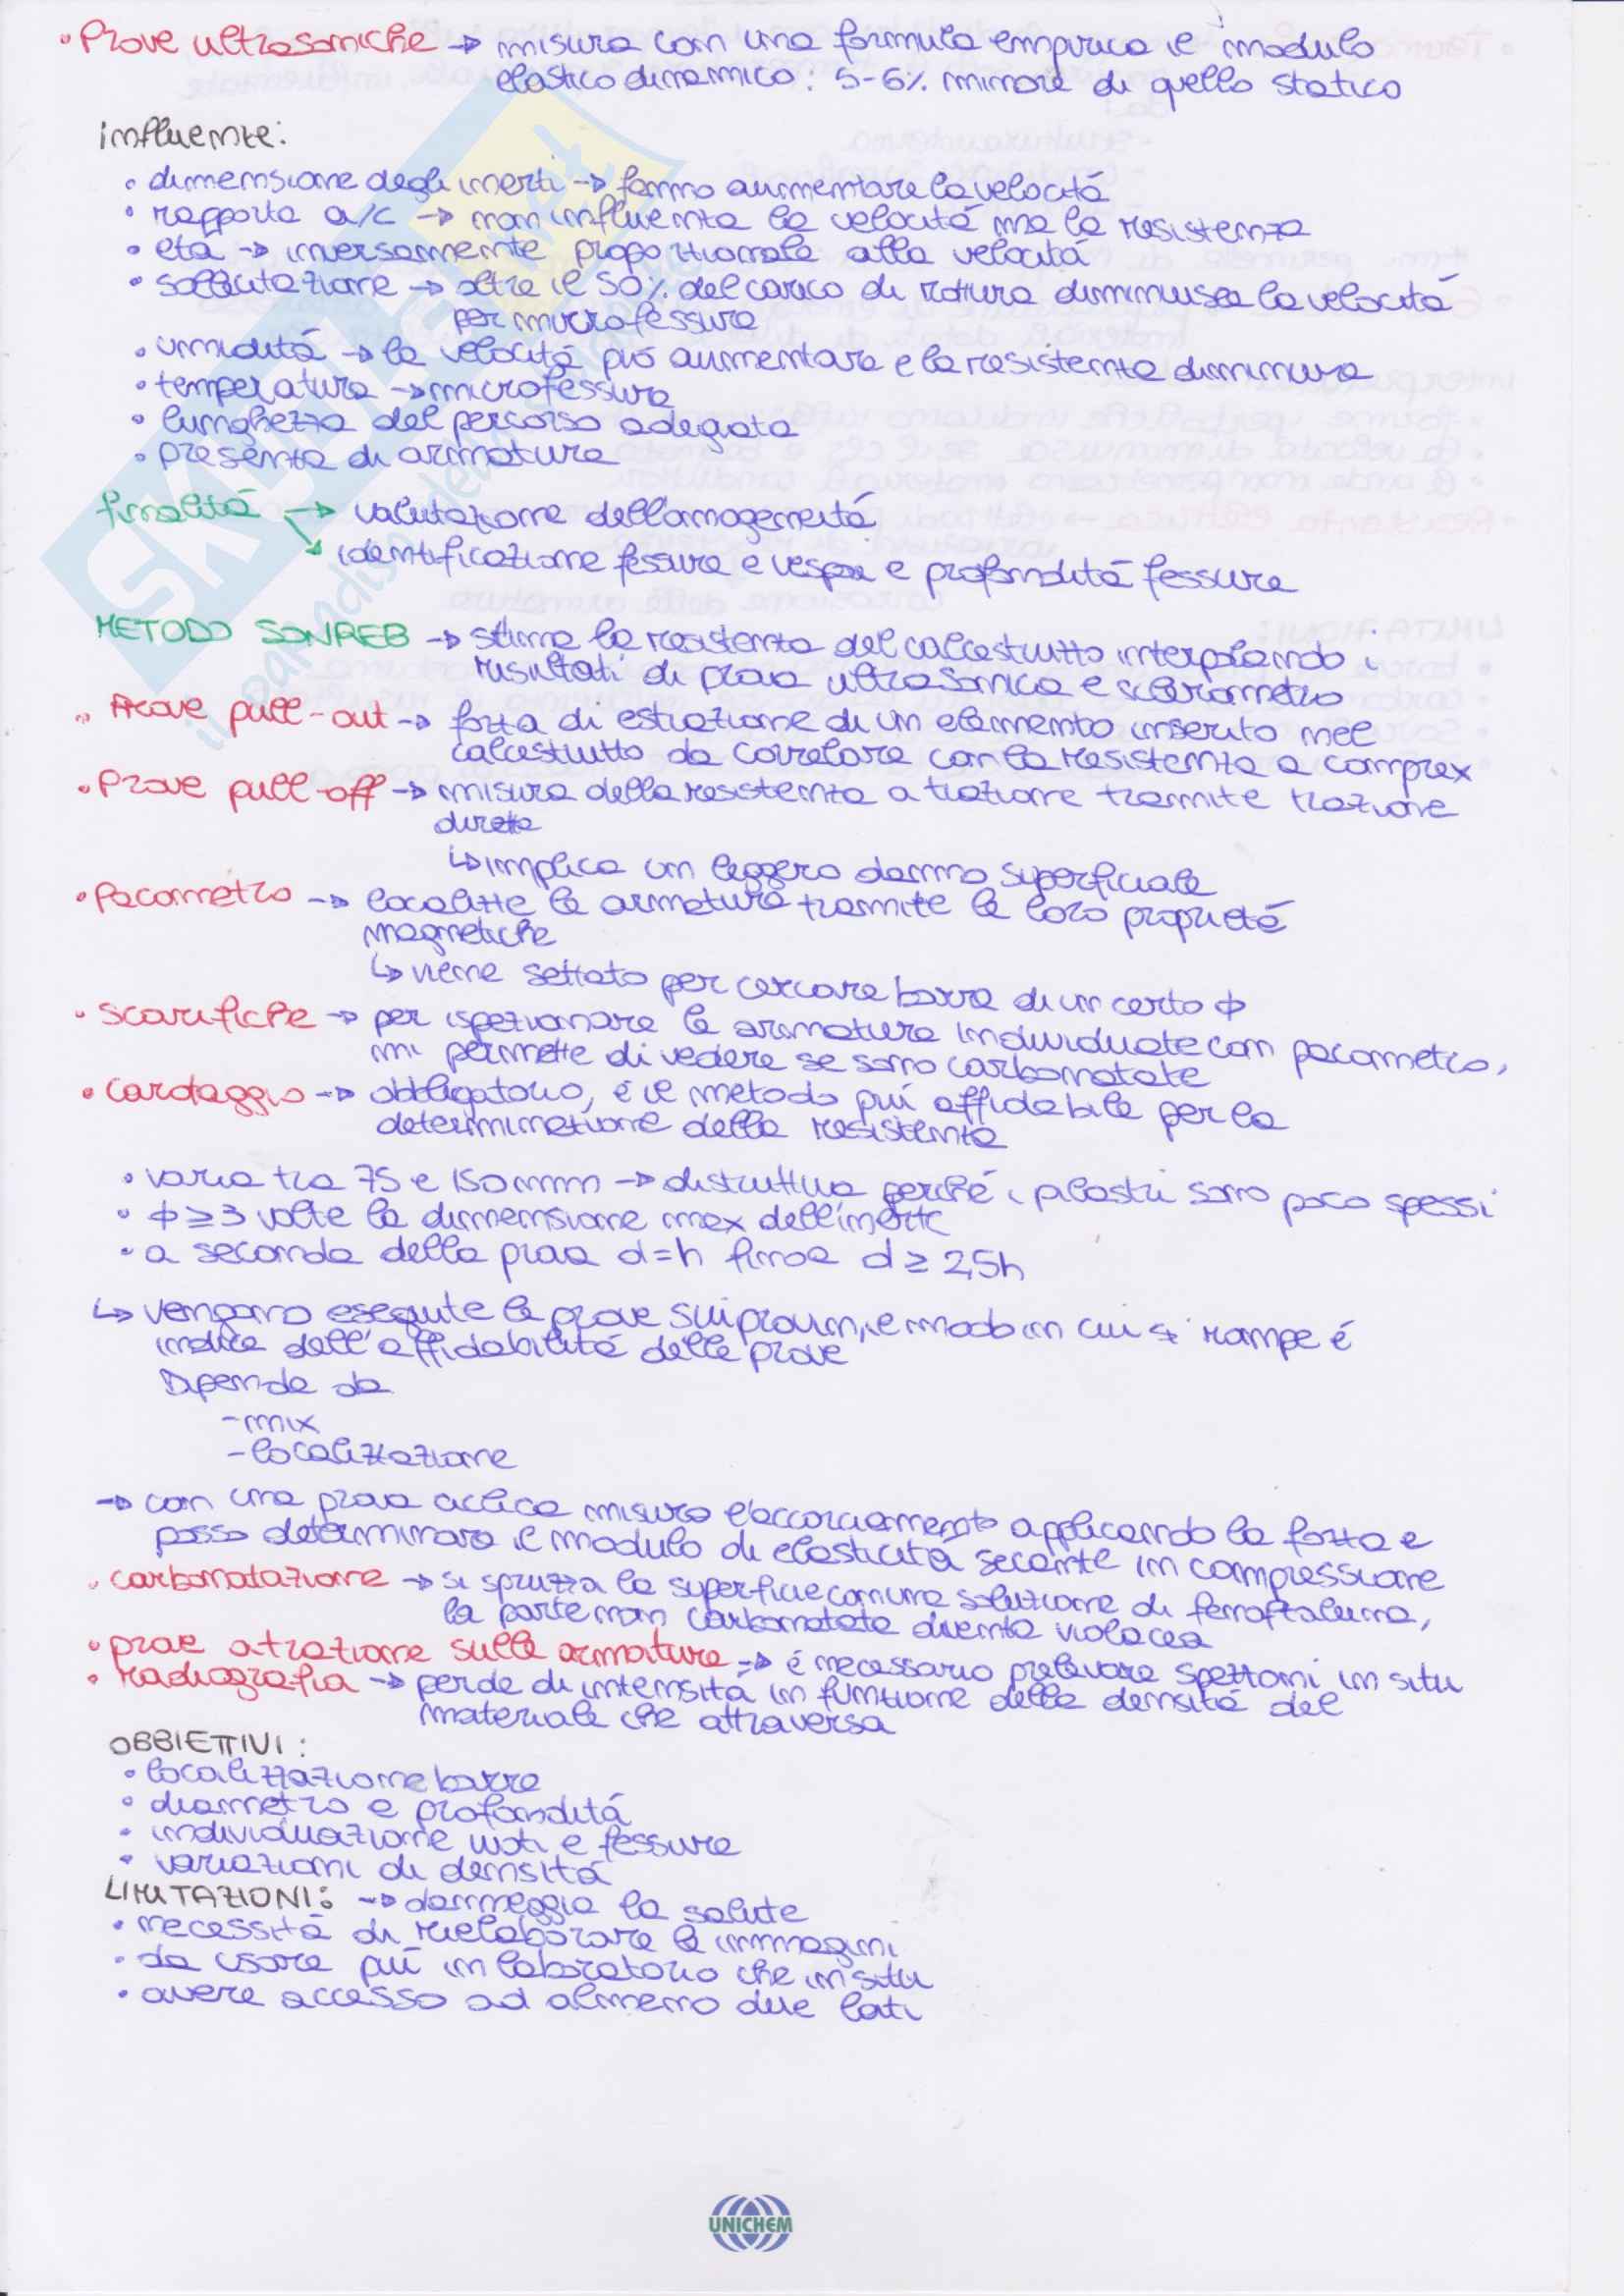 • Prove ultrasoniche → misura con una formula empirica il modulo
elastico dinamico: 5-6% minore di quello statico
influenze:
• dimensione degli inerti → fanno aumentare la velocitá
• rapporto a/c → non influenza la velocitá ma la resistenza
• etá → inversamente proporzionale alla velocitá
• sollecitazione → oltre il 50% del carico di rottura diminuisce la velocitá
per microfessure
• umiditá → la velocitá puó aumentare e la resistenza diminuire
• temperatura → microfessure
• lunghezza del percorso adeguata
• presenza di armature
finalitá → valutazione dell'omogeneitá
↘ identificazione fessure e vespai e profonditá fessure
METODO SONREB → stima la resistenza del calcestruzzo interpolando i
risultati di prova ultrasonica e sclerometro
• Prove pull-out → forza di estrazione di un elemento inserito nel
calcestruzzo da correlare con la resistenza a comprex
• Prove pull-off → misura della resistenza a trazione tramite trazione
diretta
↳ implica un leggero danno superficiale
• Pacometro → localizze le armature tramite le loro proprietá
magnetiche
↳ viene settato per cercare barre di un certo ϕ
• scarifiche → per ispezionare le armature individuate con pacometro,
mi permette di vedere se sono carbonatate
• carotaggio → obbligatorio, é il metodo piú affidabile per la
determinazione della resistenza
• varia tra 75 e 150mm → distruttiva perché i pilastri sono poco spessi
• ϕ ≥ 3 volte la dimensione max dell'inerte
• a seconda della prova d=h fino a d ≥ 2,5h
↳ vengono eseguite le prove sui provini, il modo in cui si rompe é
indice dell'affidabilitá delle prove
Dipende da
- mix
- localizzazione
→ con una prova ciclica misuro l'accorciamento applicando la forza e
posso determinare il modulo di elasticitá secante in compressione
• carbonatazione → si spruzza la superficie con una soluzione di fenoftaleina,
la parte non carbonatata diventa violacea
• prove a trazione sulle armature → é necessario prelevare spezzoni in situ
• radiografia → perde di intensitá in funzione della densitá del
materiale che attraversa
OBBIETTIVI:
• localizzazione barre
• diametro e profonditá
• individuazione vuoti e fessure
• variazioni di densitá
LIMITAZIONI: → danneggia la salute
• necessitá di rielaborare le immagini
• da usare piú in laboratorio che in situ
• avere accesso ad almeno due lati
UNICHEM